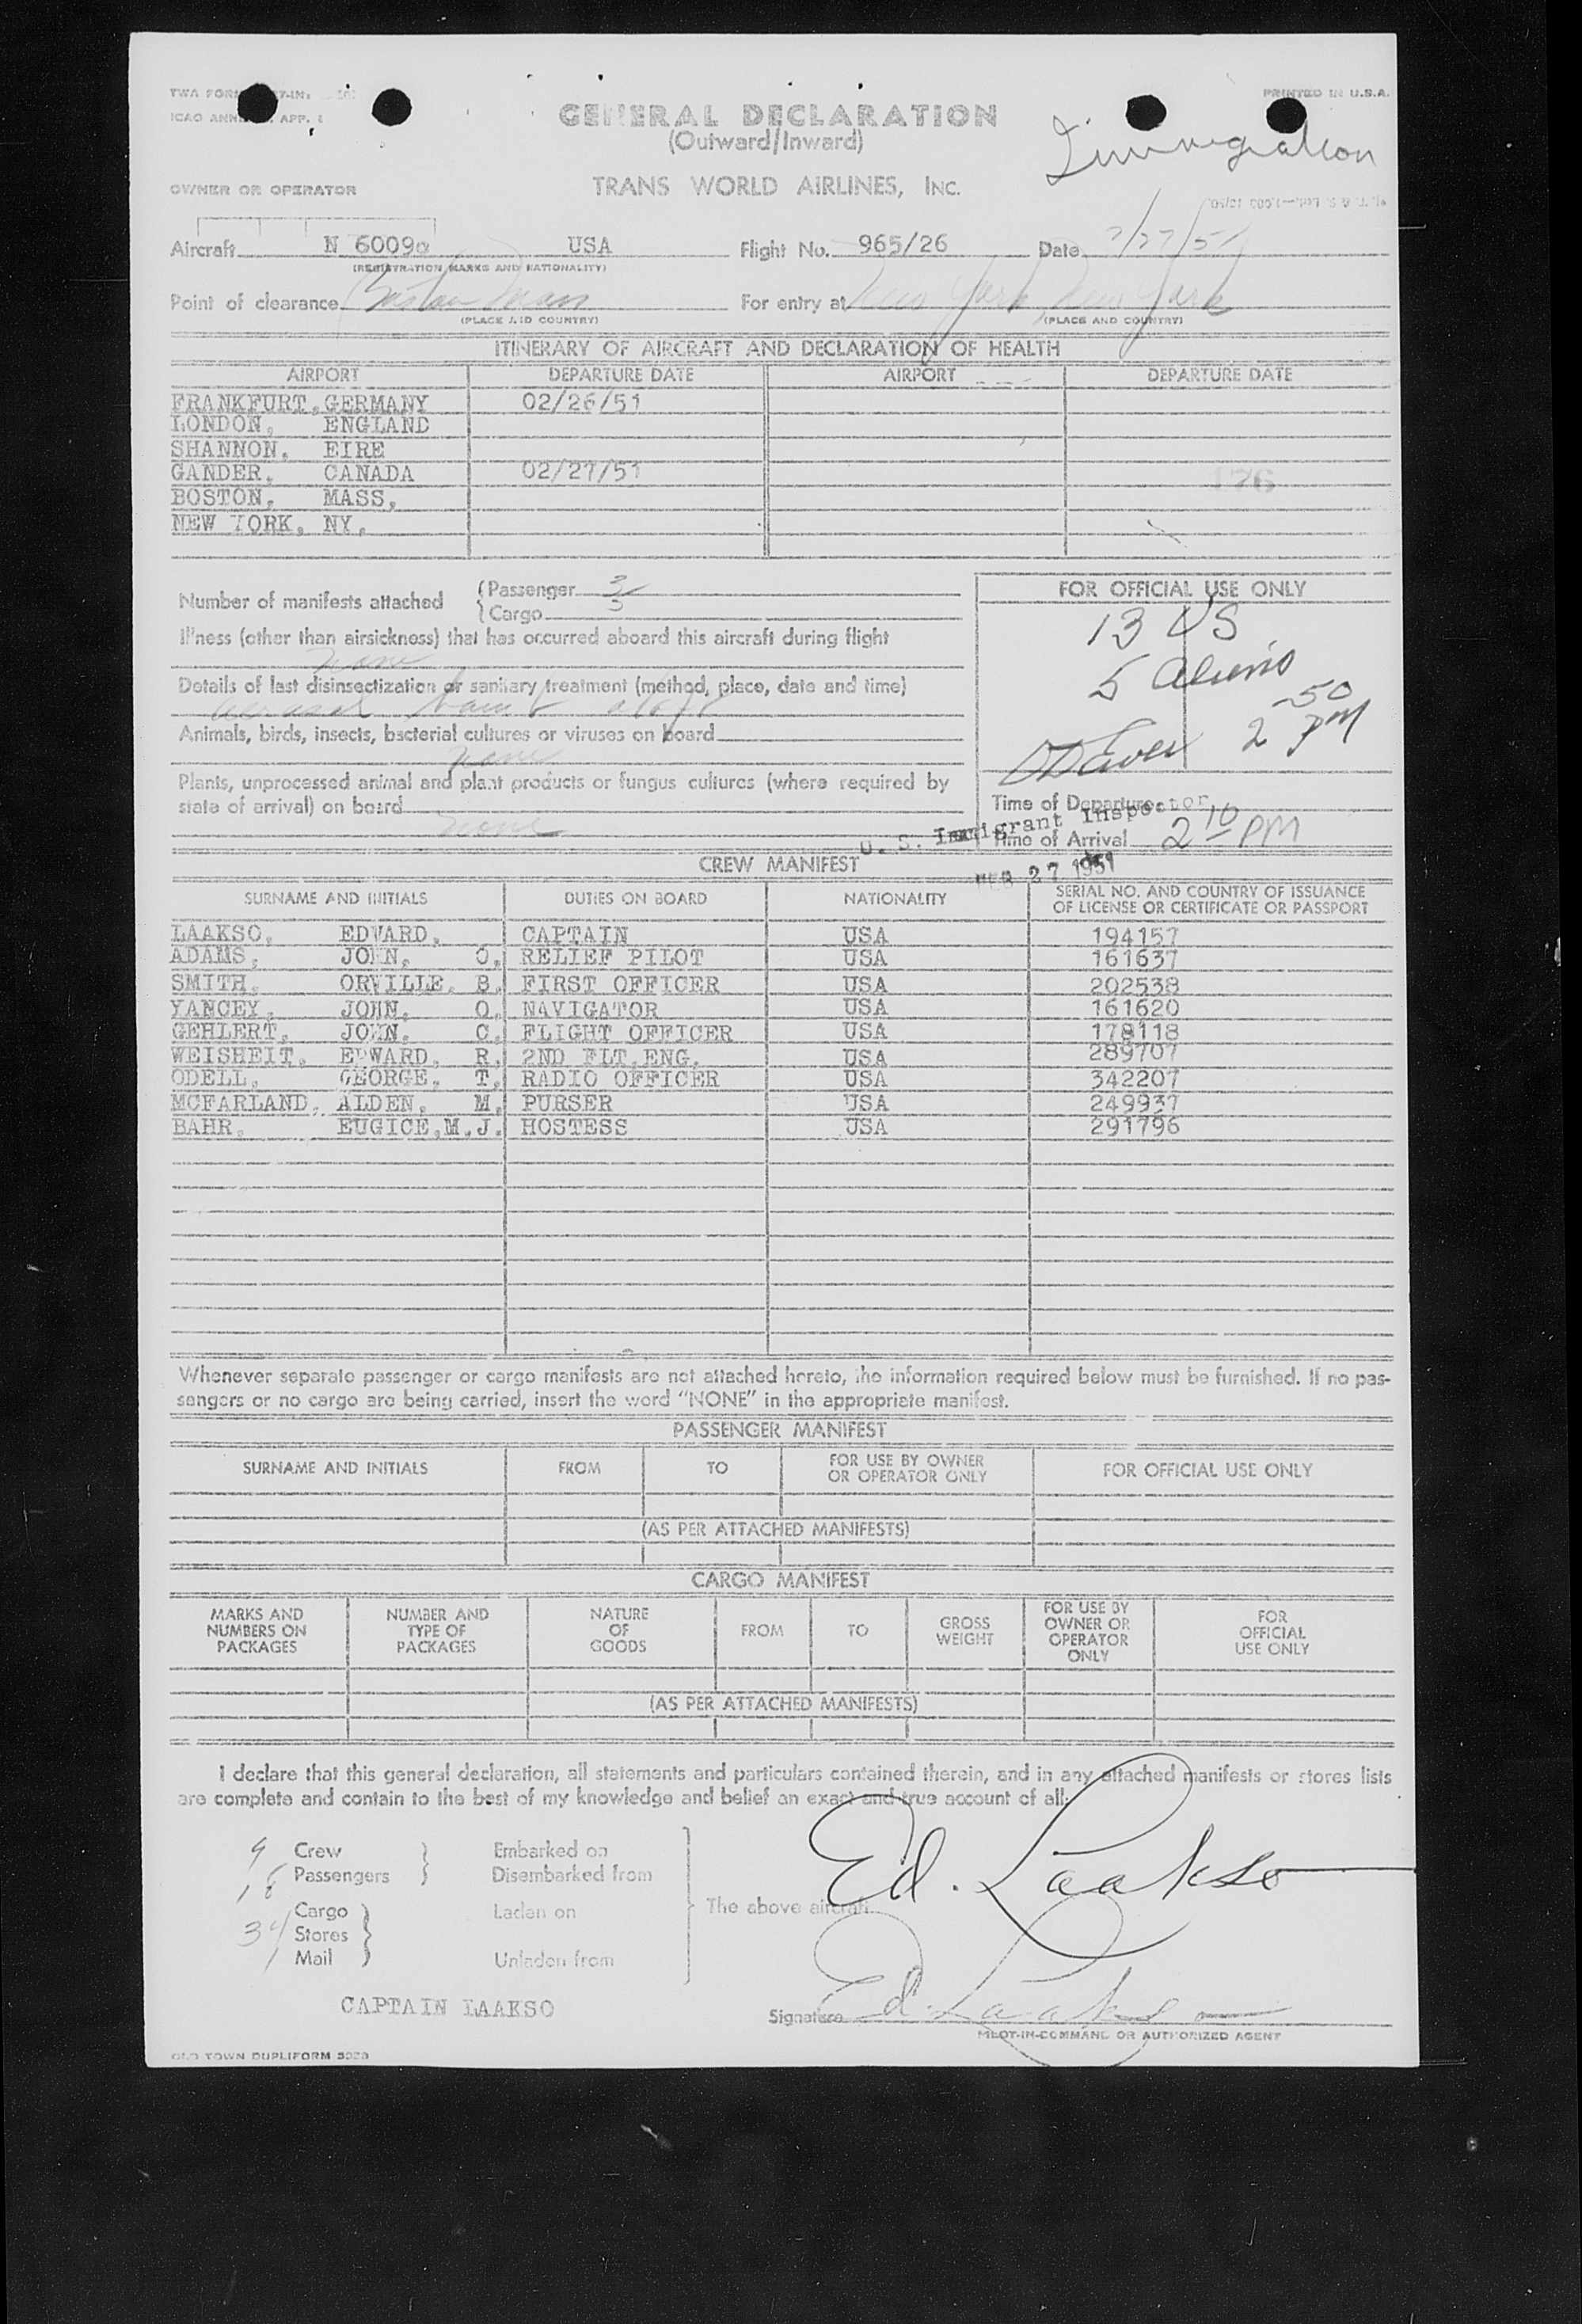 TWA FORM
PRINTED IN U.S.A.
ICAO ANN APP. 1
GENERAL DECLARATION
(Outward/Inward)
Immigration
OWNER OR OPERATOR
TRANS WORLD AIRLINES, INC.
Aircraft N 6009C USA Flight No. 965/26 Date 2/27/51
(REGISTRATION MARKS AND NATIONALITY)
Point of clearance Boston Mass For entry at New York, New York
(PLACE AND COUNTRY) (PLACE AND COUNTRY)
ITINERARY OF AIRCRAFT AND DECLARATION OF HEALTH
AIRPORT DEPARTURE DATE AIRPORT DEPARTURE DATE
FRANKFURT, GERMANY 02/26/51
LONDON, ENGLAND
SHANNON, EIRE
GANDER, CANADA 02/27/51
176
BOSTON, MASS,
NEW YORK, NY,
Number of manifests attached
(Passenger 3
Cargo 3
FOR OFFICIAL USE ONLY
13 US
5 Aliens
2 50 PM
Illness (other than airsickness) that has occurred aboard this aircraft during flight
none
Details of last disinsectization or sanitary treatment (method, place, date and time)
aerosol bomb
Animals, birds, insects, bacterial cultures or viruses on board
none
Plants, unprocessed animal and plant products or fungus cultures (where required by
state of arrival) on board
none
Time of Departure
U. S. Immigrant Inspector
Time of Arrival 2 10 PM
FEB 27 1951
CREW MANIFEST
SURNAME AND INITIALS DUTIES ON BOARD NATIONALITY SERIAL NO. AND COUNTRY OF ISSUANCE
OF LICENSE OR CERTIFICATE OR PASSPORT
LAAKSO, EDWARD, CAPTAIN USA 194157
ADAMS, JOHN, O, RELIEF PILOT USA 161637
SMITH, ORVILLE, B, FIRST OFFICER USA 202538
YANCEY, JOHN, O, NAVIGATOR USA 161620
GEHLERT, JOHN, C, FLIGHT OFFICER USA 178118
WEISHEIT, EDWARD, R, 2ND FLT.ENG. USA 289707
ODELL, GEORGE, T, RADIO OFFICER USA 342207
MCFARLAND, ALDEN, M, PURSER USA 249937
BAHR, EUGICE,M.J. HOSTESS USA 291796
Whenever separate passenger or cargo manifests are not attached hereto, the information required below must be furnished. If no pas-
sengers or no cargo are being carried, insert the word "NONE" in the appropriate manifest.
PASSENGER MANIFEST
SURNAME AND INITIALS FROM TO FOR USE BY OWNER
OR OPERATOR ONLY FOR OFFICIAL USE ONLY
(AS PER ATTACHED MANIFESTS)
CARGO MANIFEST
MARKS AND
NUMBERS ON
PACKAGES
NUMBER AND
TYPE OF
PACKAGES
NATURE
OF
GOODS
FROM
TO
GROSS
WEIGHT
FOR USE BY
OWNER OR
OPERATOR
ONLY
FOR
OFFICIAL
USE ONLY
(AS PER ATTACHED MANIFESTS)
I declare that this general declaration, all statements and particulars contained therein, and in any attached manifests or stores lists
are complete and contain to the best of my knowledge and belief an exact and true account of all:
9 Crew Embarked on
18 Passengers Disembarked from
Ed. Laakso
Cargo Laden on The above aircraft
34 Stores
Mail Unladen from
CAPTAIN LAAKSO
Signature Ed. Laakso
PILOT-IN-COMMAND OR AUTHORIZED AGENT
OLD TOWN DUPLIFORM